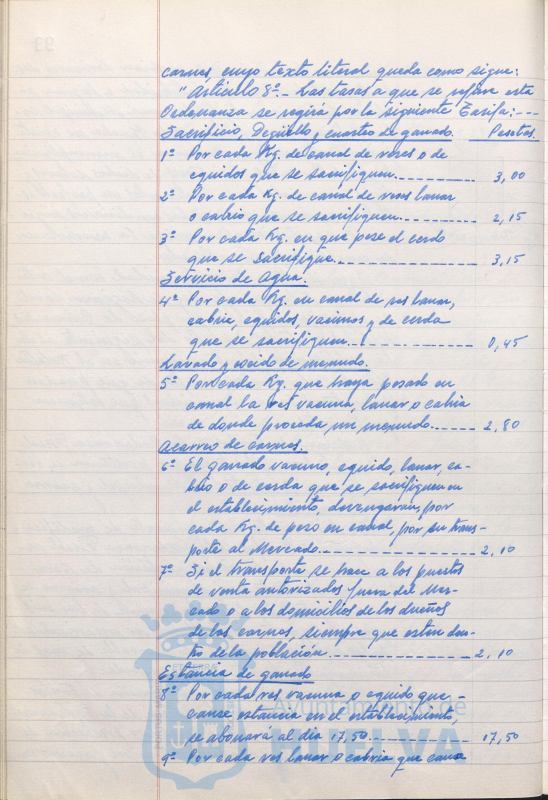 carnes, cuyo texto literal queda como sigue:
"Artículo 8º.- Las tasas a que se refiere esta
Ordenanza se regirá por la siguiente Tarifa:---
Sacrificio, Degüello y cuarteo de ganado. Pesetas.
1º Por cada Kg. de canal de reses o de
equidos que se sacrifiquen.---------- 3,00
2º Por cada Kg. de canal de reses lanar
o cabrio que se sacrifiquen.---------- 2,15
3º Por cada Kg. en que pese el cerdo
que se sacrifique.---------- 3,15
Servicio de Agua.
4º Por cada Kg. en canal de res lanar,
cabrio, equidos, vacunos y de cerda
que se sacrifiquen.---------- 0,45
Lavado y cocido de menudo.
5º Por cada Kg. que haya pesado en
canal la res vacuna, lanar o cabria
de donde proceda un menudo.------ 2,80
Acarreo de carnes.
6º El ganado vacuno, equido, lanar, ca-
brio o de cerda que se sacrifiquen en
el establecimiento, devengaran, por
cada Kg. de peso en canal, por su trans-
porte al Mercado.---------- 2,10
7º Si el transporte se hace a los puestos
de venta autorizados fuera del Mer-
cado o a los domicilios de los dueños
de las carnes, siempre que esten den-
tro de la población.---------- 2,10
Estancia de ganado
8º Por cada res vacuna o equido que -
cause estancia en el establecimiento,
se abonará al día 17,50.---------- 17,50
9º Por cada res lanar o cabria que cause
Ayuntamiento de
HUELVA